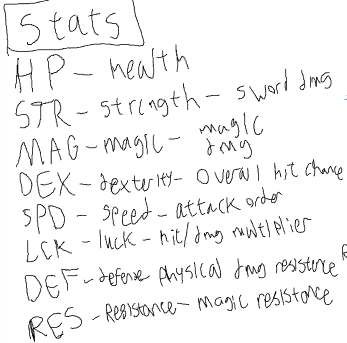 Stats
HP - health
STR - strength - sword dmg
MAG - magic - magic dmg
DEX - dexterity - overall hit chance
SPD - speed - attack order
LCK - luck - hit/dmg multiplier
DEF - defense physical dmg resistance R
RES - Resistance - magic resistance